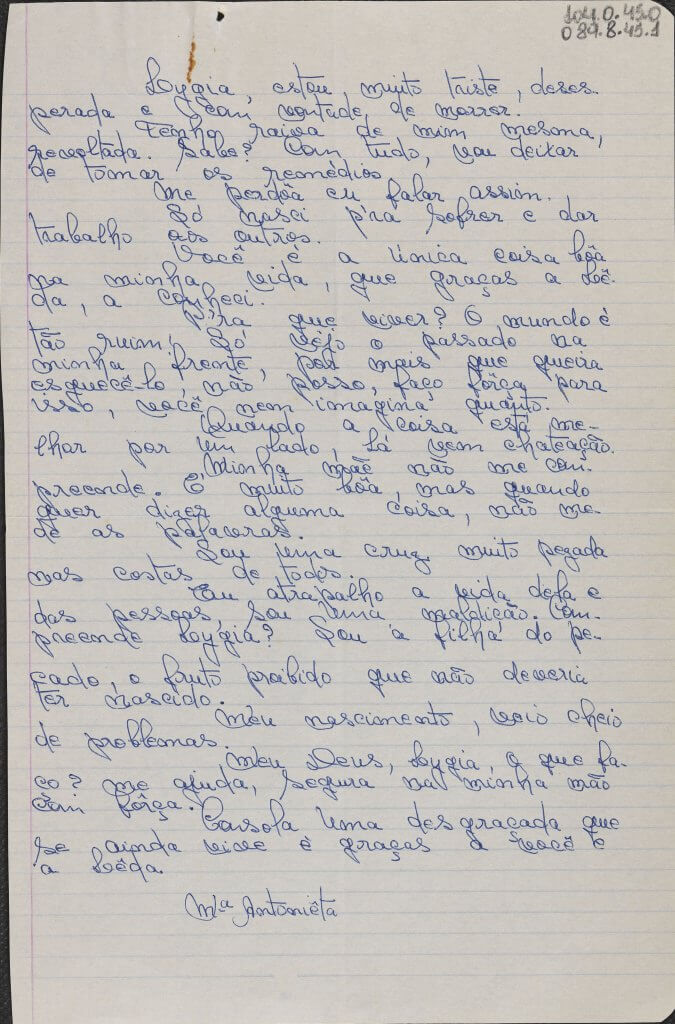 104.0.45.0
089.8.45.1
Lygia, estou muito triste, deses-
perada e com vontade de morrer.
Tenho raiva de mim mesma,
revoltada. Sabe? Com tudo, vou deixar
de tomar os remédios.
Me perdôa eu falar assim.
Só nasci p'ra sofrer e dar
trabalho aos outros.
Você é a única coisa bôa
na minha vida, que graças a Lêe-
da, a conheci.
P'ra que viver? O mundo é
tão ruim! Só vejo o passado na
minha frente, por mais que queira
esquecê-lo, não posso, faço fôrça para
isso, você nem imagina quanto.
Quando a coisa está me-
lhor por um lado, lá vem chateação.
Minha mãe não me com-
preende. É muito bôa, mas quando
quer dizer alguma coisa, não me-
de as palavras.
Sou uma cruz muito pezada
nas costas de todos.
Eu atrapalho a vida dela e
das pessoas, sou uma maldição. Com-
preende Lygia? Sou a filha do pe-
cado, o fruto proibido que não deveria
ter nascido.
Meu nascimento, veio cheio
de problemas.
Meu Deus, Lygia, o que fa-
ço? me ajuda, segura na minha mão
com fôrça.
Consola uma desgraçada que
se ainda vive é graças a você e
a Lêda.
Mª Antoniêta